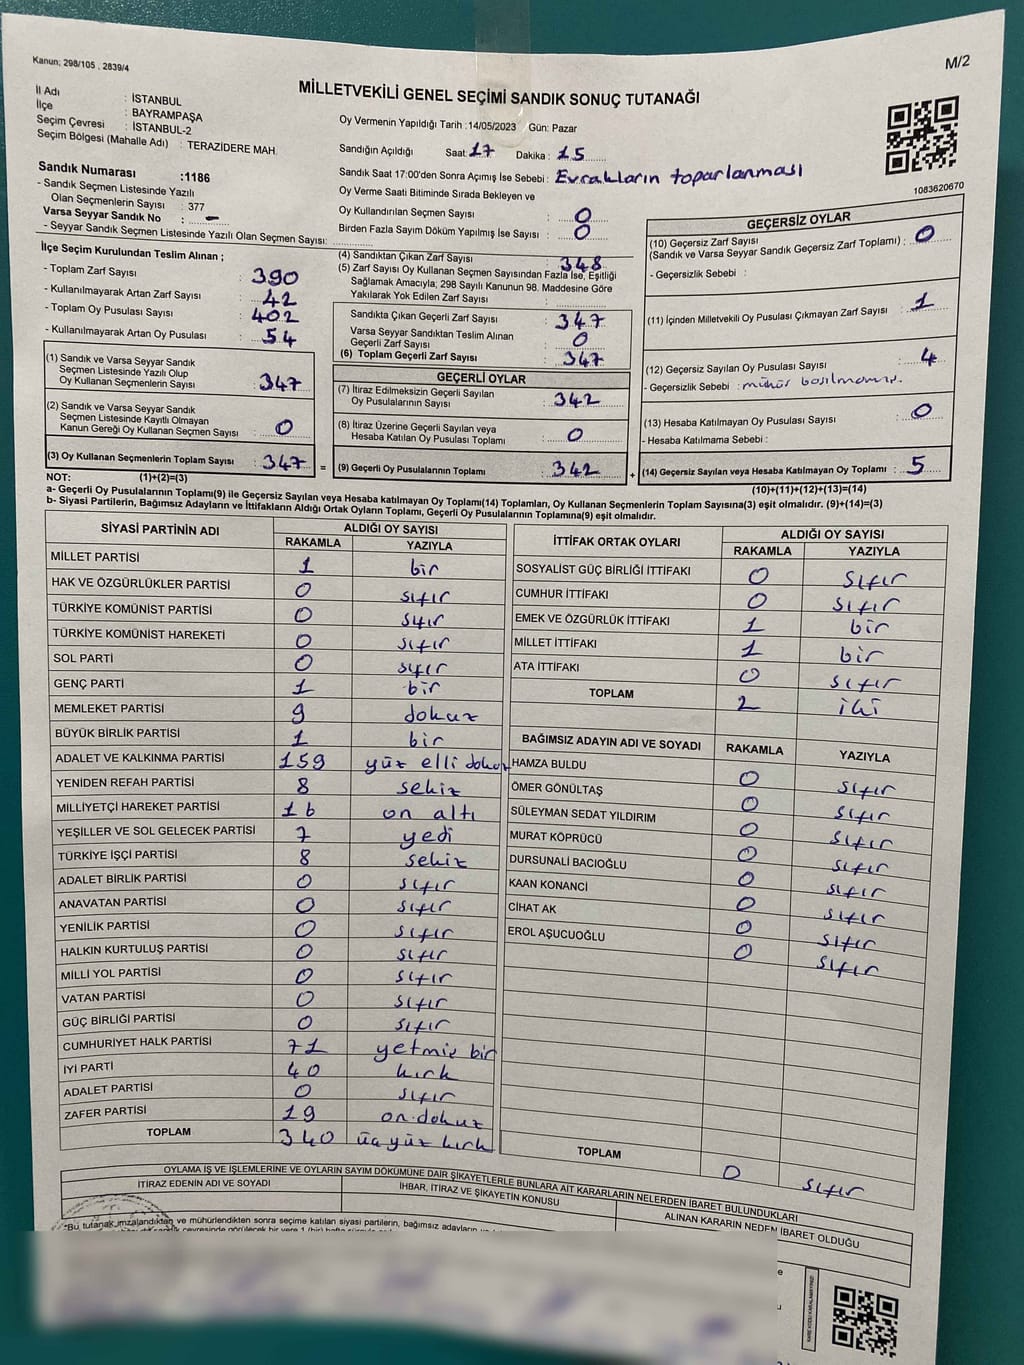 Kanun; 298/105 , 2839/4
M/2
MİLLETVEKİLİ GENEL SEÇİMİ SANDIK SONUÇ TUTANAĞI
İl Adı : İSTANBUL
İlçe : BAYRAMPAŞA
Seçim Çevresi : İSTANBUL-2
Seçim Bölgesi (Mahalle Adı) : TERAZİDERE MAH.
Oy Vermenin Yapıldığı Tarih :14/05/2023 Gün: Pazar
Sandığın Açıldığı Saat: 17 Dakika : 15
Sandık Saat 17:00'den Sonra Açımış İse Sebebi : Evrakların toparlanması
1083620670
Sandık Numarası :1186
- Sandık Seçmen Listesinde Yazılı
Olan Seçmenlerin Sayısı : 377
Varsa Seyyar Sandık No : -
- Seyyar Sandık Seçmen Listesinde Yazılı Olan Seçmen Sayısı:
Oy Verme Saati Bitiminde Sırada Bekleyen ve
Oy Kullandırılan Seçmen Sayısı : 0
Birden Fazla Sayım Döküm Yapılmış İse Sayısı : 0
İlçe Seçim Kurulundan Teslim Alınan ;
- Toplam Zarf Sayısı : 390
- Kullanılmayarak Artan Zarf Sayısı : 42
- Toplam Oy Pusulası Sayısı : 402
- Kullanılmayarak Artan Oy Pusulası : 54
(1) Sandık ve Varsa Seyyar Sandık
Seçmen Listesinde Yazılı Olup
Oy Kullanan Seçmenlerin Sayısı : 347
(2) Sandık ve Varsa Seyyar Sandık
Seçmen Listesinde Kayıtlı Olmayan
Kanun Gereği Oy Kullanan Seçmen Sayısı : 0
(3) Oy Kullanan Seçmenlerin Toplam Sayısı : 347
(4) Sandıktan Çıkan Zarf Sayısı : 348
(5) Zarf Sayısı Oy Kullanan Seçmen Sayısından Fazla İse, Eşitliği
Sağlamak Amacıyla; 298 Sayılı Kanunun 98. Maddesine Göre
Yakılarak Yok Edilen Zarf Sayısı :
Sandıkta Çıkan Geçerli Zarf Sayısı : 347
Varsa Seyyar Sandıktan Teslim Alınan
Geçerli Zarf Sayısı : 0
(6) Toplam Geçerli Zarf Sayısı : 347
GEÇERLİ OYLAR
(7) İtiraz Edilmeksizin Geçerli Sayılan
Oy Pusulalarının Sayısı : 342
(8) İtiraz Üzerine Geçerli Sayılan veya
Hesaba Katılan Oy Pusulası Toplamı : 0
= (9) Geçerli Oy Pusulalarının Toplamı : 342
GEÇERSİZ OYLAR
(10) Geçersiz Zarf Sayısı
(Sandık ve Varsa Seyyar Sandık Geçersiz Zarf Toplamı) : 0
- Geçersizlik Sebebi :
(11) İçinden Milletvekili Oy Pusulası Çıkmayan Zarf Sayısı : 1
(12) Geçersiz Sayılan Oy Pusulası Sayısı : 4
- Geçersizlik Sebebi : mühür basılmamış.
(13) Hesaba Katılmayan Oy Pusulası Sayısı : 0
- Hesaba Katılmama Sebebi :
+ (14) Geçersiz Sayılan veya Hesaba Katılmayan Oy Toplamı : 5
NOT: (1)+(2)=(3)
(10)+(11)+(12)+(13)=(14)
a- Geçerli Oy Pusulalarının Toplamı(9) ile Geçersiz Sayılan veya Hesaba katılmayan Oy Toplamı(14) Toplamları, Oy Kullanan Seçmenlerin Toplam Sayısına(3) eşit olmalıdır. (9)+(14)=(3)
b- Siyasi Partilerin, Bağımsız Adayların ve İttifakların Aldığı Ortak Oyların Toplamı, Geçerli Oy Pusulalarının Toplamına(9) eşit olmalıdır.
SİYASİ PARTİNİN ADI ALDIĞI OY SAYISI
RAKAMLA YAZIYLA
MİLLET PARTİSİ 1 bir
HAK VE ÖZGÜRLÜKLER PARTİSİ 0 sıfır
TÜRKİYE KOMÜNİST PARTİSİ 0 sıfır
TÜRKİYE KOMÜNİST HAREKETİ 0 sıfır
SOL PARTİ 0 sıfır
GENÇ PARTİ 1 bir
MEMLEKET PARTİSİ 9 dokuz
BÜYÜK BİRLİK PARTİSİ 1 bir
ADALET VE KALKINMA PARTİSİ 159 yüz elli dokuz
YENİDEN REFAH PARTİSİ 8 sekiz
MİLLİYETÇİ HAREKET PARTİSİ 16 on altı
YEŞİLLER VE SOL GELECEK PARTİSİ 7 yedi
TÜRKİYE İŞÇİ PARTİSİ 8 sekiz
ADALET BİRLİK PARTİSİ 0 sıfır
ANAVATAN PARTİSİ 0 sıfır
YENİLİK PARTİSİ 0 sıfır
HALKIN KURTULUŞ PARTİSİ 0 sıfır
MİLLİ YOL PARTİSİ 0 sıfır
VATAN PARTİSİ 0 sıfır
GÜÇ BİRLİĞİ PARTİSİ 0 sıfır
CUMHURİYET HALK PARTİSİ 71 yetmiş bir
İYİ PARTİ 40 kırk
ADALET PARTİSİ 0 sıfır
ZAFER PARTİSİ 19 on dokuz
TOPLAM 340 üç yüz kırk
İTTİFAK ORTAK OYLARI ALDIĞI OY SAYISI
RAKAMLA YAZIYLA
SOSYALİST GÜÇ BİRLİĞİ İTTİFAKI 0 sıfır
CUMHUR İTTİFAKI 0 sıfır
EMEK VE ÖZGÜRLÜK İTTİFAKI 1 bir
MİLLET İTTİFAKI 1 bir
ATA İTTİFAKI 0 sıfır
TOPLAM 2 iki
BAĞIMSIZ ADAYIN ADI VE SOYADI RAKAMLA YAZIYLA
HAMZA BULDU 0 sıfır
ÖMER GÖNÜLTAŞ 0 sıfır
SÜLEYMAN SEDAT YILDIRIM 0 sıfır
MURAT KÖPRÜCÜ 0 sıfır
DURSUNALİ BACIOĞLU 0 sıfır
KAAN KONANCİ 0 sıfır
CİHAT AK 0 sıfır
EROL AŞUCUOĞLU 0 sıfır
TOPLAM 0 sıfır
OYLAMA İŞ VE İŞLEMLERİNE VE OYLARIN SAYIM DÖKÜMÜNE DAİR ŞİKAYETLERLE BUNLARA AİT KARARLARIN NELERDEN İBARET BULUNDUKLARI
İTİRAZ EDENİN ADI VE SOYADI İHBAR, İTİRAZ VE ŞİKAYETİN KONUSU ALINAN KARARIN NEDEN İBARET OLDUĞU
"Bu tutanak imzalandıktan ve mühürlendikten sonra seçime katılan siyasi partilerin, bağımsız adayların